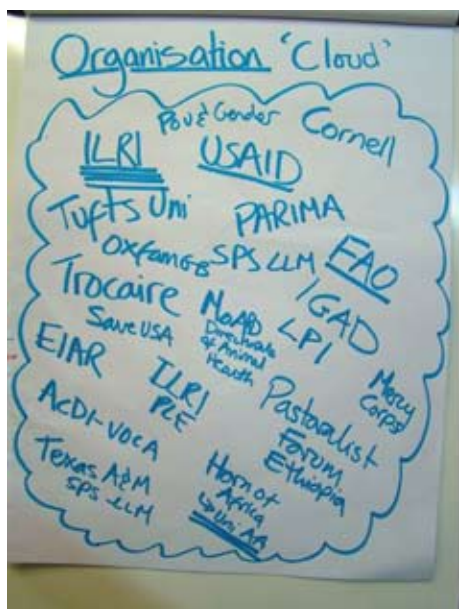 Organisation 'Cloud'
Pov & Gender
Cornell
ILRI
USAID
Tufts Uni
PARIMA
Oxfam GB
SPS LLM
FAO
Trocaire
IGAD
Save USA
MoARD
Directorate
of Animal
Health
LPI
EIAR
ILRI
PLE
Mercy
Corps
Pastoralist
Forum
Ethiopia
ACDI-VOCA
Texas A&M
SPS LLM
Horn of
Africa
↳ Uni AA